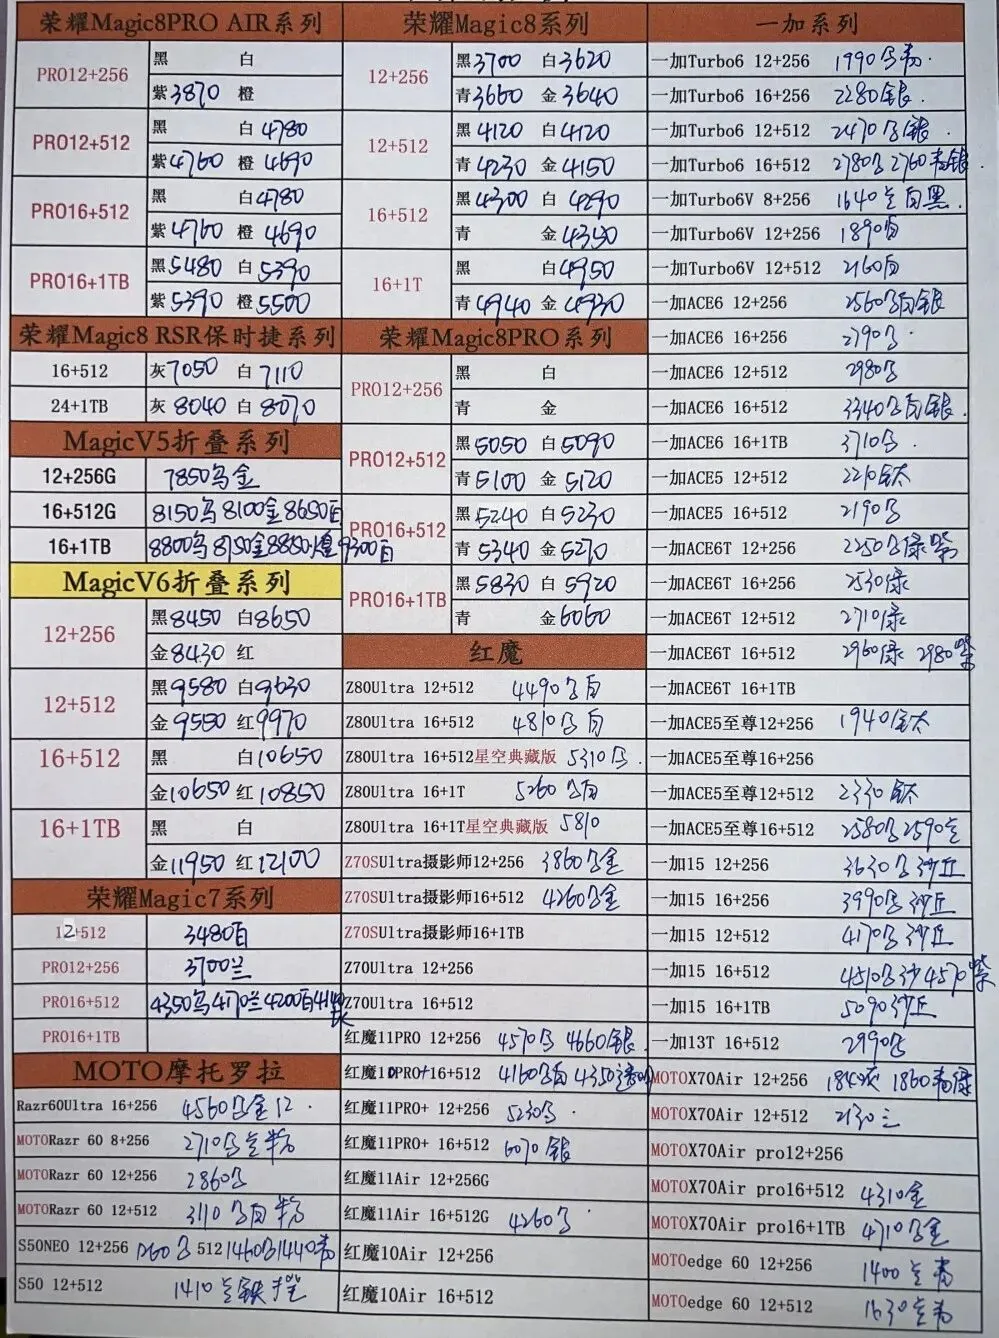 荣耀Magic8PRO AIR系列
PRO12+256
黑 白
紫3870 橙
PRO12+512
黑 白4780
紫4760 橙4690
PRO16+512
黑 白4780
紫4760 橙4690
PRO16+1TB
黑5480 白5390
紫5390 橙5500
荣耀Magic8 RSR保时捷系列
16+512 灰7050 白7110
24+1TB 灰8040 白8070
MagicV5折叠系列
12+256G 7850乌金
16+512G 8150乌8100金8650白
16+1TB 8800乌8750金8850煌9300白
MagicV6折叠系列
12+256
黑8450 白8650
金8430 红
12+512
黑9580 白9630
金9550 红9970
16+512
黑 白10650
金10650 红10850
16+1TB
黑 白
金11950 红12100
荣耀Magic7系列
12+512 3480白
PRO12+256 3700兰
PRO16+512 4350乌4170兰4200白
PRO16+1TB
MOTO摩托罗拉
Razr60Ultra 16+256 4560乌金12
MOTORazr 60 8+256 2710乌
MOTORazr 60 12+256 2860乌
MOTORazr 60 12+512 3110乌白
S50NEO 12+256 1260乌 512 1460乌1440青
S50 12+512 1410
荣耀Magic8系列
12+256
黑3700 白3620
青3660 金3640
12+512
黑4120 白4120
青4230 金4150
16+512
黑4300 白4290
青 金4350
16+1T
黑 白4950
青4940 金4930
荣耀Magic8PRO系列
PRO12+256
黑 白
青 金
PRO12+512
黑5050 白5090
青5100 金5120
PRO16+512
黑5240 白5230
青5340 金5270
PRO16+1TB
黑5830 白5920
青 金6060
红魔
Z80Ultra 12+512 4490乌白
Z80Ultra 16+512 4810乌白
Z80Ultra 16+512星空典藏版 5310乌
Z80Ultra 16+1T 5260乌白
Z80Ultra 16+1T星空典藏版 5810
Z70SUltra摄影师12+256 3860乌金
Z70SUltra摄影师16+512 4260乌金
Z70SUltra摄影师16+1TB
Z70Ultra 12+256
Z70Ultra 16+512
红魔11PRO 12+256 4570乌 4660银
红魔10PRO+16+512 4160乌白 4350透
红魔11PRO+ 12+256 5230乌
红魔11PRO+ 16+512 6070银
红魔11Air 12+256G
红魔11Air 16+512G 4260乌
红魔10Air 12+256
红魔10Air 16+512
一加系列
一加Turbo6 12+256 1990乌青
一加Turbo6 16+256 2280银
一加Turbo6 12+512 2470乌银
一加Turbo6 16+512 2780乌 2760青银
一加Turbo6V 8+256 1640全白黑
一加Turbo6V 12+256 1890白
一加Turbo6V 12+512 2160白
一加ACE6 12+256 2560乌白银
一加ACE6 16+256 2790乌
一加ACE6 12+512 2980乌
一加ACE6 16+512 3340乌白银
一加ACE6 16+1TB 3710乌
一加ACE5 12+512 2210钛
一加ACE5 16+512 2190乌
一加ACE6T 12+256 2250乌绿紫
一加ACE6T 16+256 2530绿
一加ACE6T 12+512 2710绿
一加ACE6T 16+512 2960绿 2980紫
一加ACE6T 16+1TB
一加ACE5至尊12+256 1940全钛
一加ACE5至尊16+256
一加ACE5至尊12+512 2330钛
一加ACE5至尊16+512 2580乌2590全
一加15 12+256 3630乌沙丘
一加15 16+256 3990乌沙丘
一加15 12+512 4170乌沙丘
一加15 16+512 4510乌沙4570紫
一加15 16+1TB 5090沙丘
一加13T 16+512 2990乌
MOTOX70Air 12+256 1840灰 1860青绿
MOTOX70Air 12+512 2130三
MOTOX70Air pro12+256
MOTOX70Air pro16+512 4310金
MOTOX70Air pro16+1TB 4710乌金
MOTOedge 60 12+256 1400全青
MOTOedge 60 12+512 1630全青